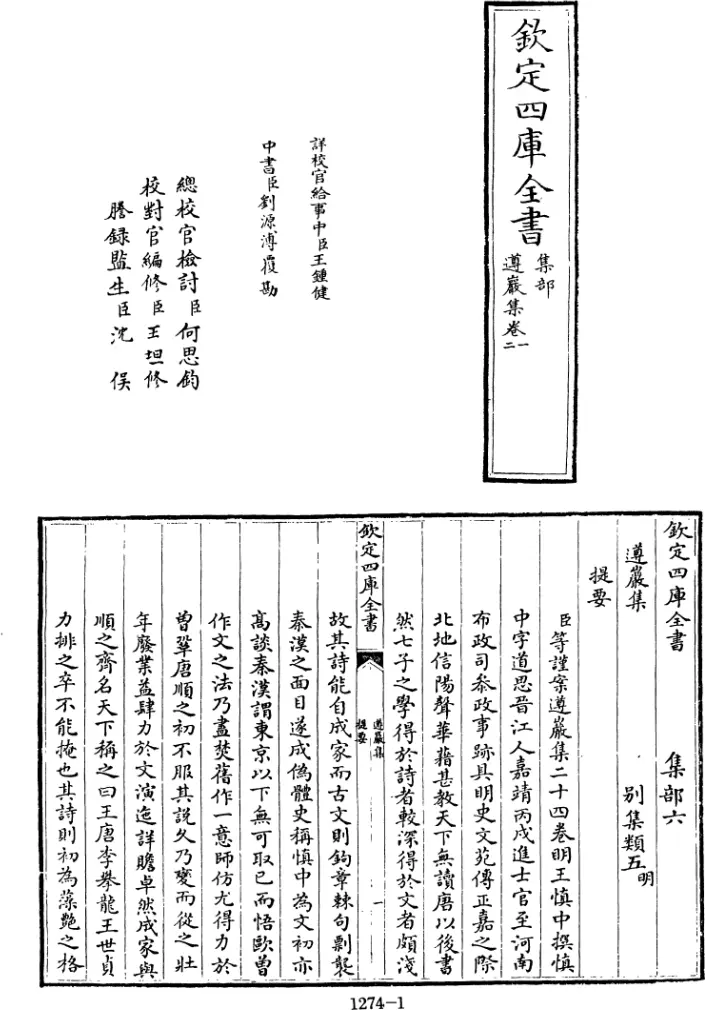 欽定四庫全書
集部
遵巖集卷一
二
詳校官給事中臣王鍾健
中書臣劉源溥覆勘
總校官檢討臣何思鈞
校對官編修臣王坦修
謄録監生臣沈俁
欽定四庫全書
集部六
遵巖集
別集類五明
提要
臣等謹案遵巖集二十四卷明王慎中撰慎
中字道思晉江人嘉靖丙戌進士官至河南
布政司叅政事蹟具明史文苑傳正嘉之際
北地信陽聲華藉甚教天下無讀唐以後書
然七子之學得於詩者較深得於文者頗淺
欽定四庫全書
遵巖集
提要
一
故其詩能自成家而古文則鉤章棘句剽襲
秦漢之面目遂成偽體史稱慎中為文初亦
高談秦漢謂東京以下無可取已而悟歐曽
作文之法乃盡焚舊作一意師仿尤得力於
曽鞏唐順之初不服其說久乃變而從之壯
年廢業益肆力於文演迤詳贍卓然成家與
順之齊名天下稱之曰王唐李攀龍王世貞
力排之卒不能掩也其詩則初為藻艷之格
1274-1